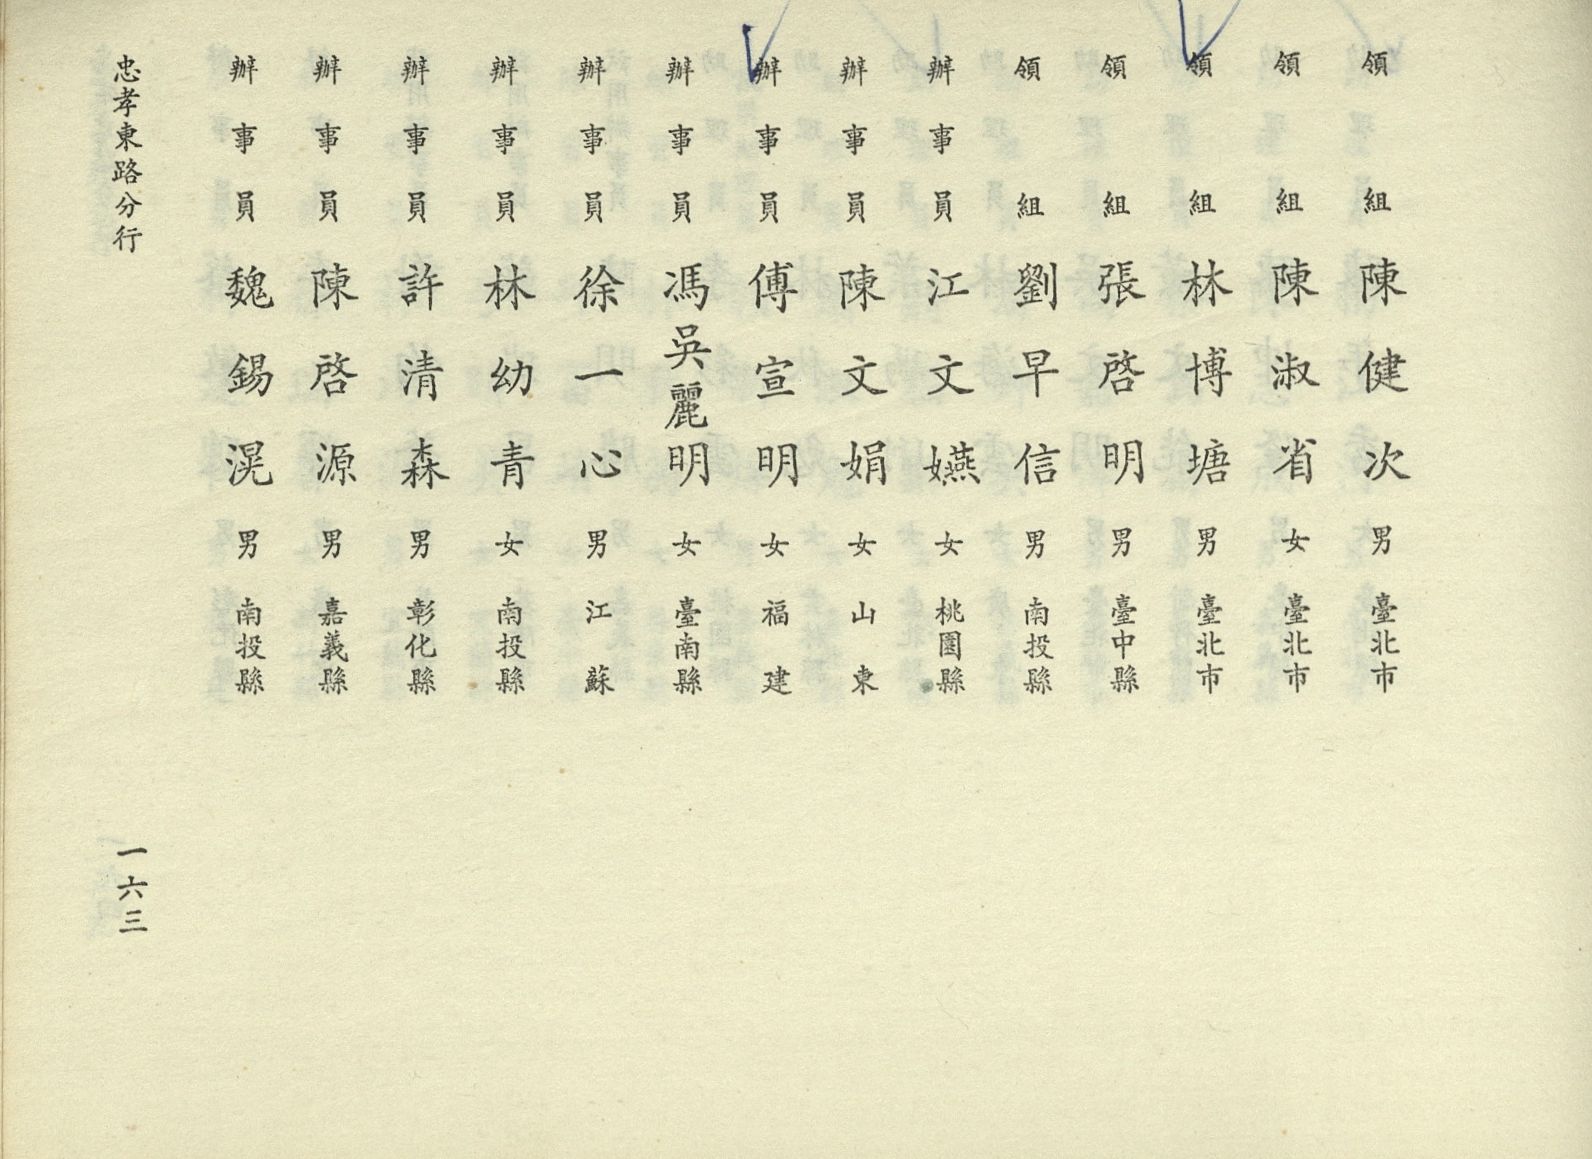 領組 陳健次 男 臺北市
領組 陳淑省 女 臺北市
領組 林博塘 男 臺北市
領組 張啓明 男 臺中縣
領組 劉早信 男 南投縣
辦事員 江文嬿 女 桃園縣
辦事員 陳文娟 女 山東
辦事員 傅宣明 女 福建
辦事員 馮吳麗明 女 臺南縣
辦事員 徐一心 男 江蘇
辦事員 林幼青 女 南投縣
辦事員 許清森 男 彰化縣
辦事員 陳啓源 男 嘉義縣
辦事員 魏錫滉 男 南投縣
忠孝東路分行
一六三